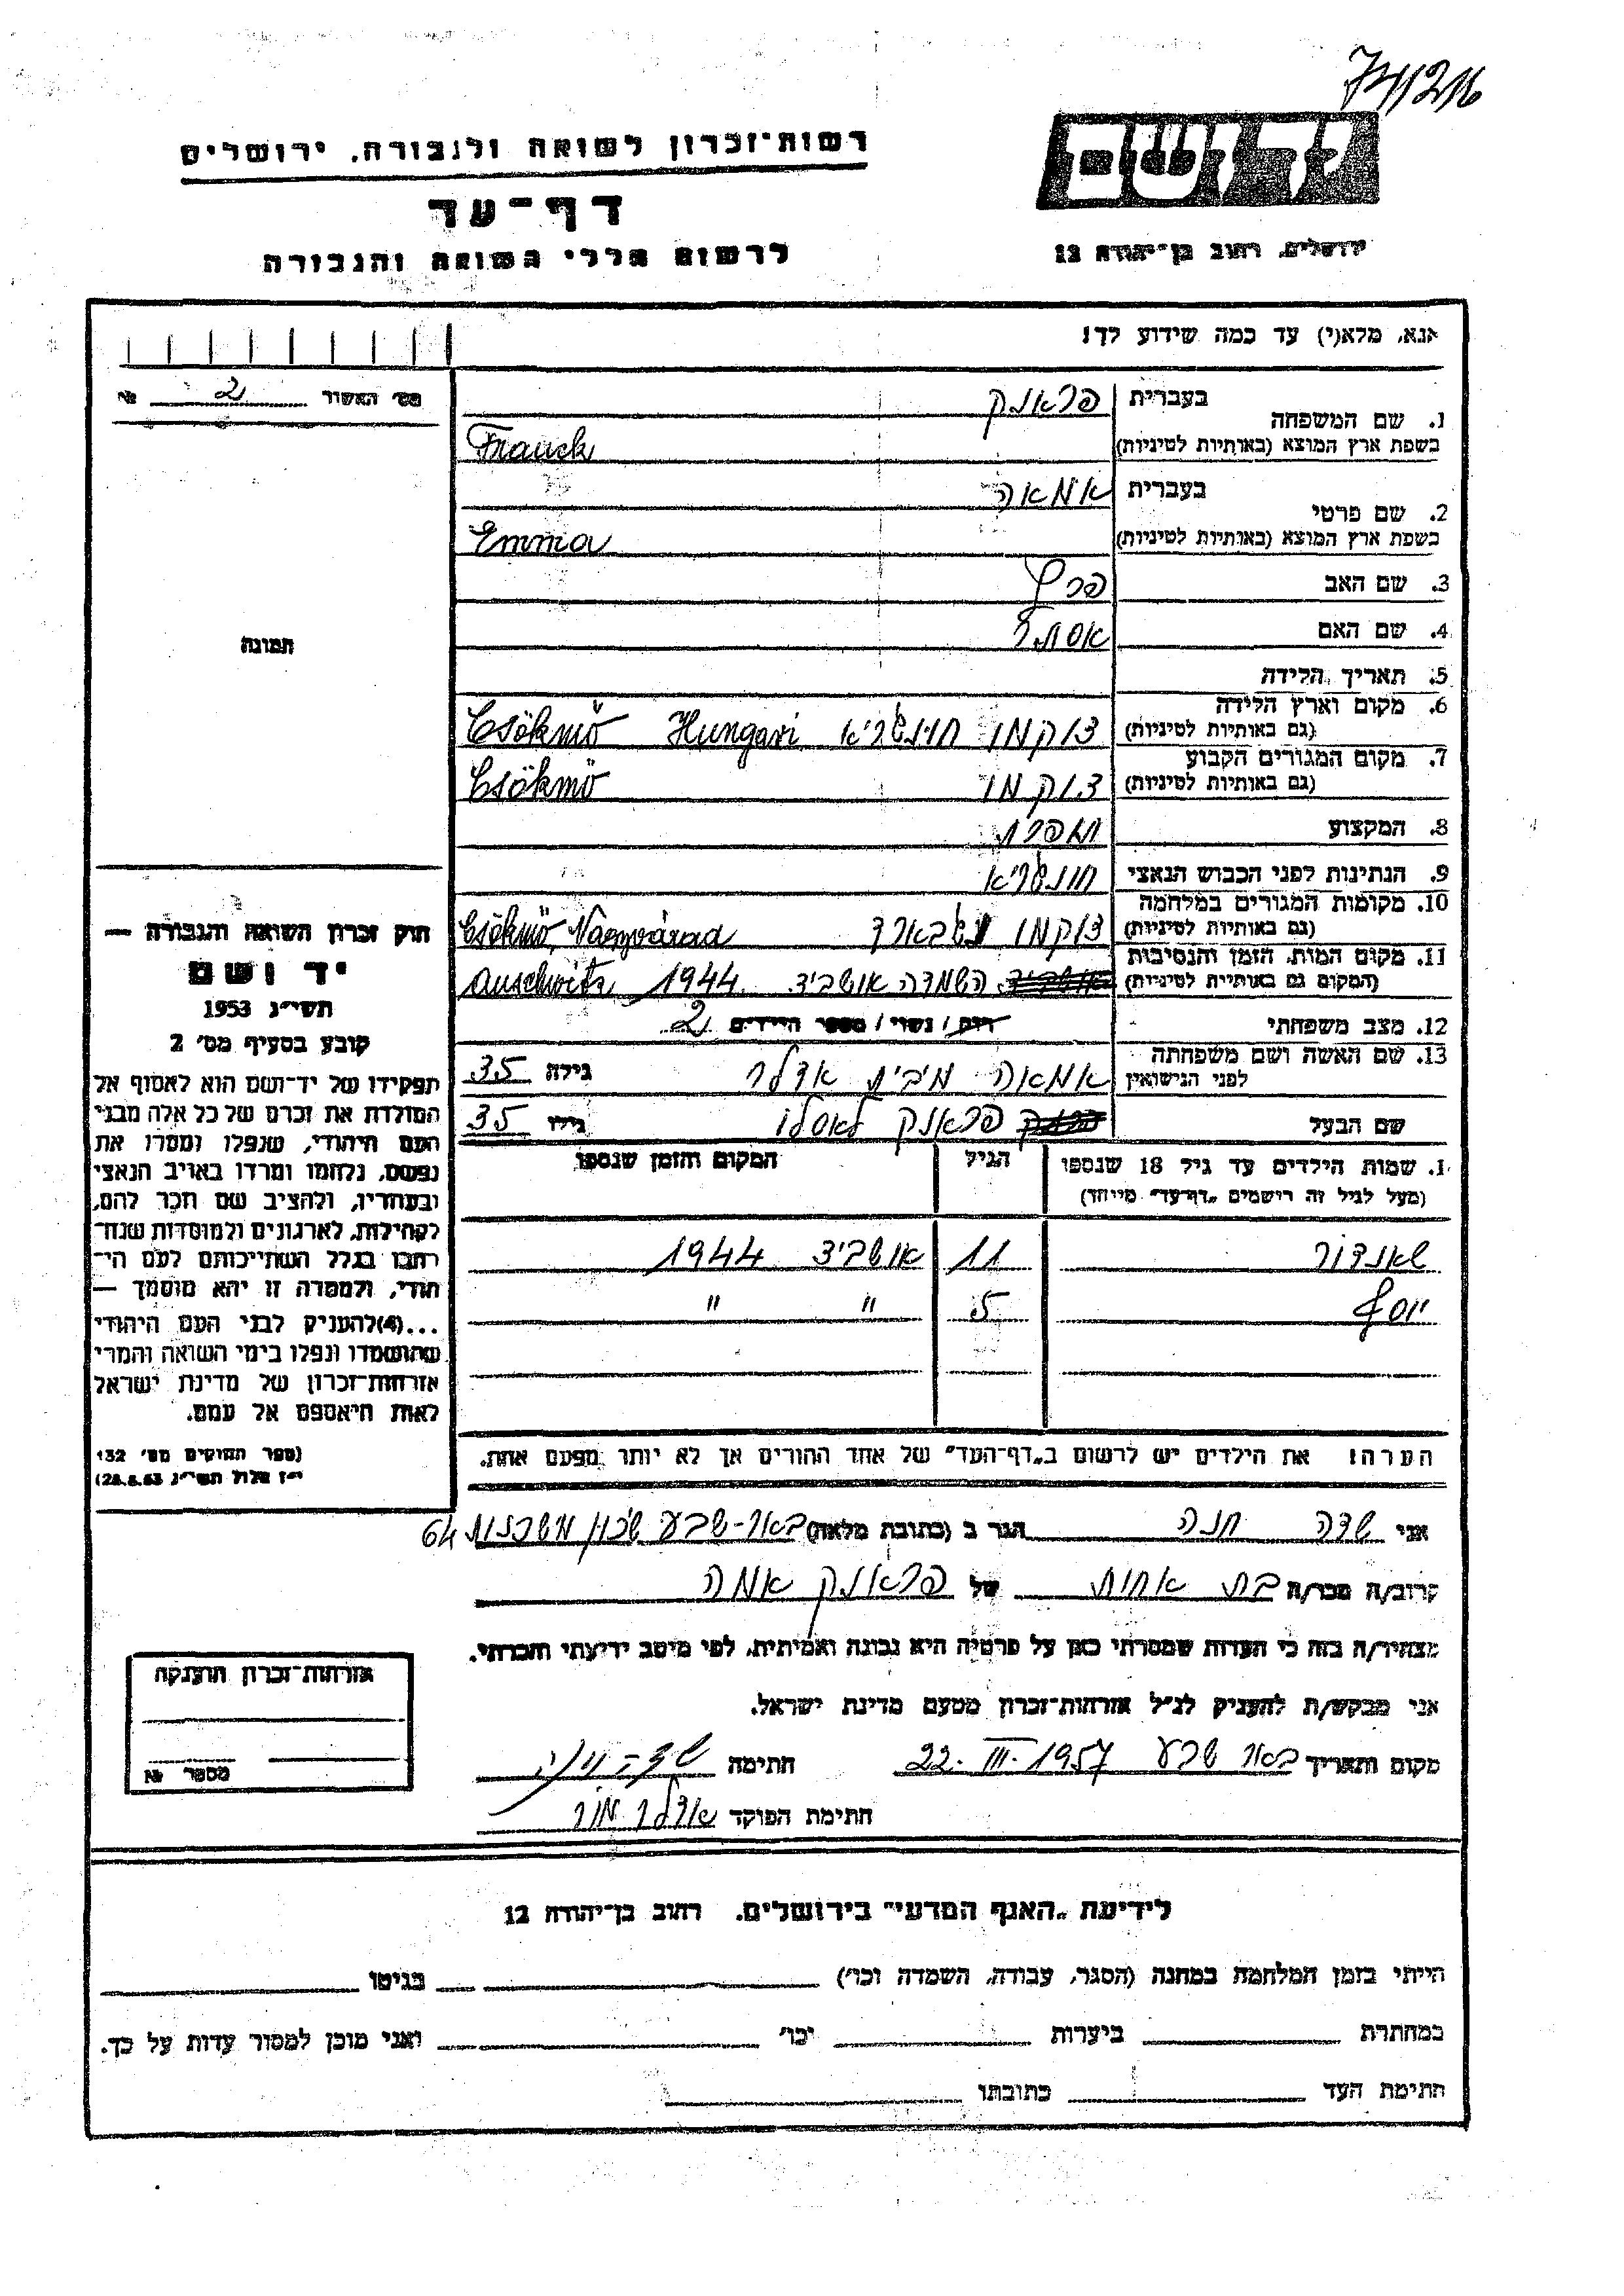 רשות־זכרון לשואה ולגבורה, ירושלים
דף־עד
לרשום חללי השואה והגבורה
ידושם
ירושלים, רחוב בן־יהודה 12
אנא, מלא(י) עד כמה שידוע לך!
מס׳ האשור 2 №
1. שם המשפחה בעברית פראנק
בשפת ארץ המוצא (באותיות לטיניות) Franck
2. שם פרטי בעברית אמאה
בשפת ארץ המוצא (באותיות לטיניות) Emma
3. שם האב פרץ
4. שם האם אסתר
5. תאריך הלידה
6. מקום וארץ הלידה
(גם באותיות לטיניות) צ׳וקמו הונגריא Hungari Csökmő
7. מקום המגורים הקבוע
(גם באותיות לטיניות) צ׳וקמו Csökmő
8. המקצוע תופרת
9. הנתינות לפני הכבוש הנאצי הונגריא
10. מקומות המגורים במלחמה
(גם באותיות לטיניות) צ׳וקמו Csökmő, Nagyvárad
11. מקום המות, הזמן והנסיבות
(המקום גם באותיות לטיניות) השמדה אושביץ 1944 Auschwitz
12. מצב משפחתי רווק / נשוי / מספר הילדים 2
13. שם האשה ושם משפחתה
לפני הנישואין אמאה מבית אדלר גילה 35
שם הבעל פראנק לאסלו גילו 35
1. שמות הילדים עד גיל 18 שנספו
(מעל לגיל זה רישמים „דף־עד״ מייחד)
הגיל
המקום והזמן שנספו
שאנדור 11 אושביץ 1944
יוסף 5 " "
הערה: את הילדים יש לרשום ב„דף־העד״ של אחד ההורים אך לא יותר מפעם אחת.
תמונה
חוק זכרון השואה והגבורה —
יד ושם
תשי״ג 1953
קובע בסעיף מס׳ 2
תפקידו של יד־ושם הוא לאסוף אל
המולדת את זכרם של כל אלה מבני
העם היהודי, שנפלו ומסרו את
נפשם, נלחמו ומרדו באויב הנאצי
ובעוזריו, ולהציב שם וזכר להם,
לקהילות, לארגונים ולמוסדות שנח־
רבו בגלל השתייכותם לעם הי־
הודי, ולמטרה זו יהא מוסמך —
...(4) להעניק לבני העם היהודי
שהושמדו ונפלו בימי השואה והמרי
אזרחות־זכרון של מדינת ישראל
לאות היאספם אל עמם.
(ספר החוקים מס׳ 132
י״ז אלול תשי״ג 28.8.53)
אני שדה חנה הגר ב (כתובת מלאה) באר-שבע שכון 64
קרוב/ה מכר/ה בת אחות של פראנק אמה
מצהיר/ה בזה כי העדות שמסרתי כאן על פרטיה היא נכונה ואמיתית, לפי מיטב ידיעתי והכרתי.
אני מבקש/ת להעניק לנ״ל אזרחות־זכרון מטעם מדינת ישראל.
מקום ותאריך באר שבע 22-III-1957 חתימה שדה חנה
חתימת הפוקד אדלר
אזרחות־זכרון הוענקה
מספר №
לידיעת „האגף המדעי״ בירושלים, רחוב בן־יהודה 12
הייתי בזמן המלחמה במחנה (הסגר, עבודה, השמדה וכו׳) בגיטו
במחתרת ביערות וכו׳ ואני מוכן למסור עדות על כך.
חתימת העד כתובתו